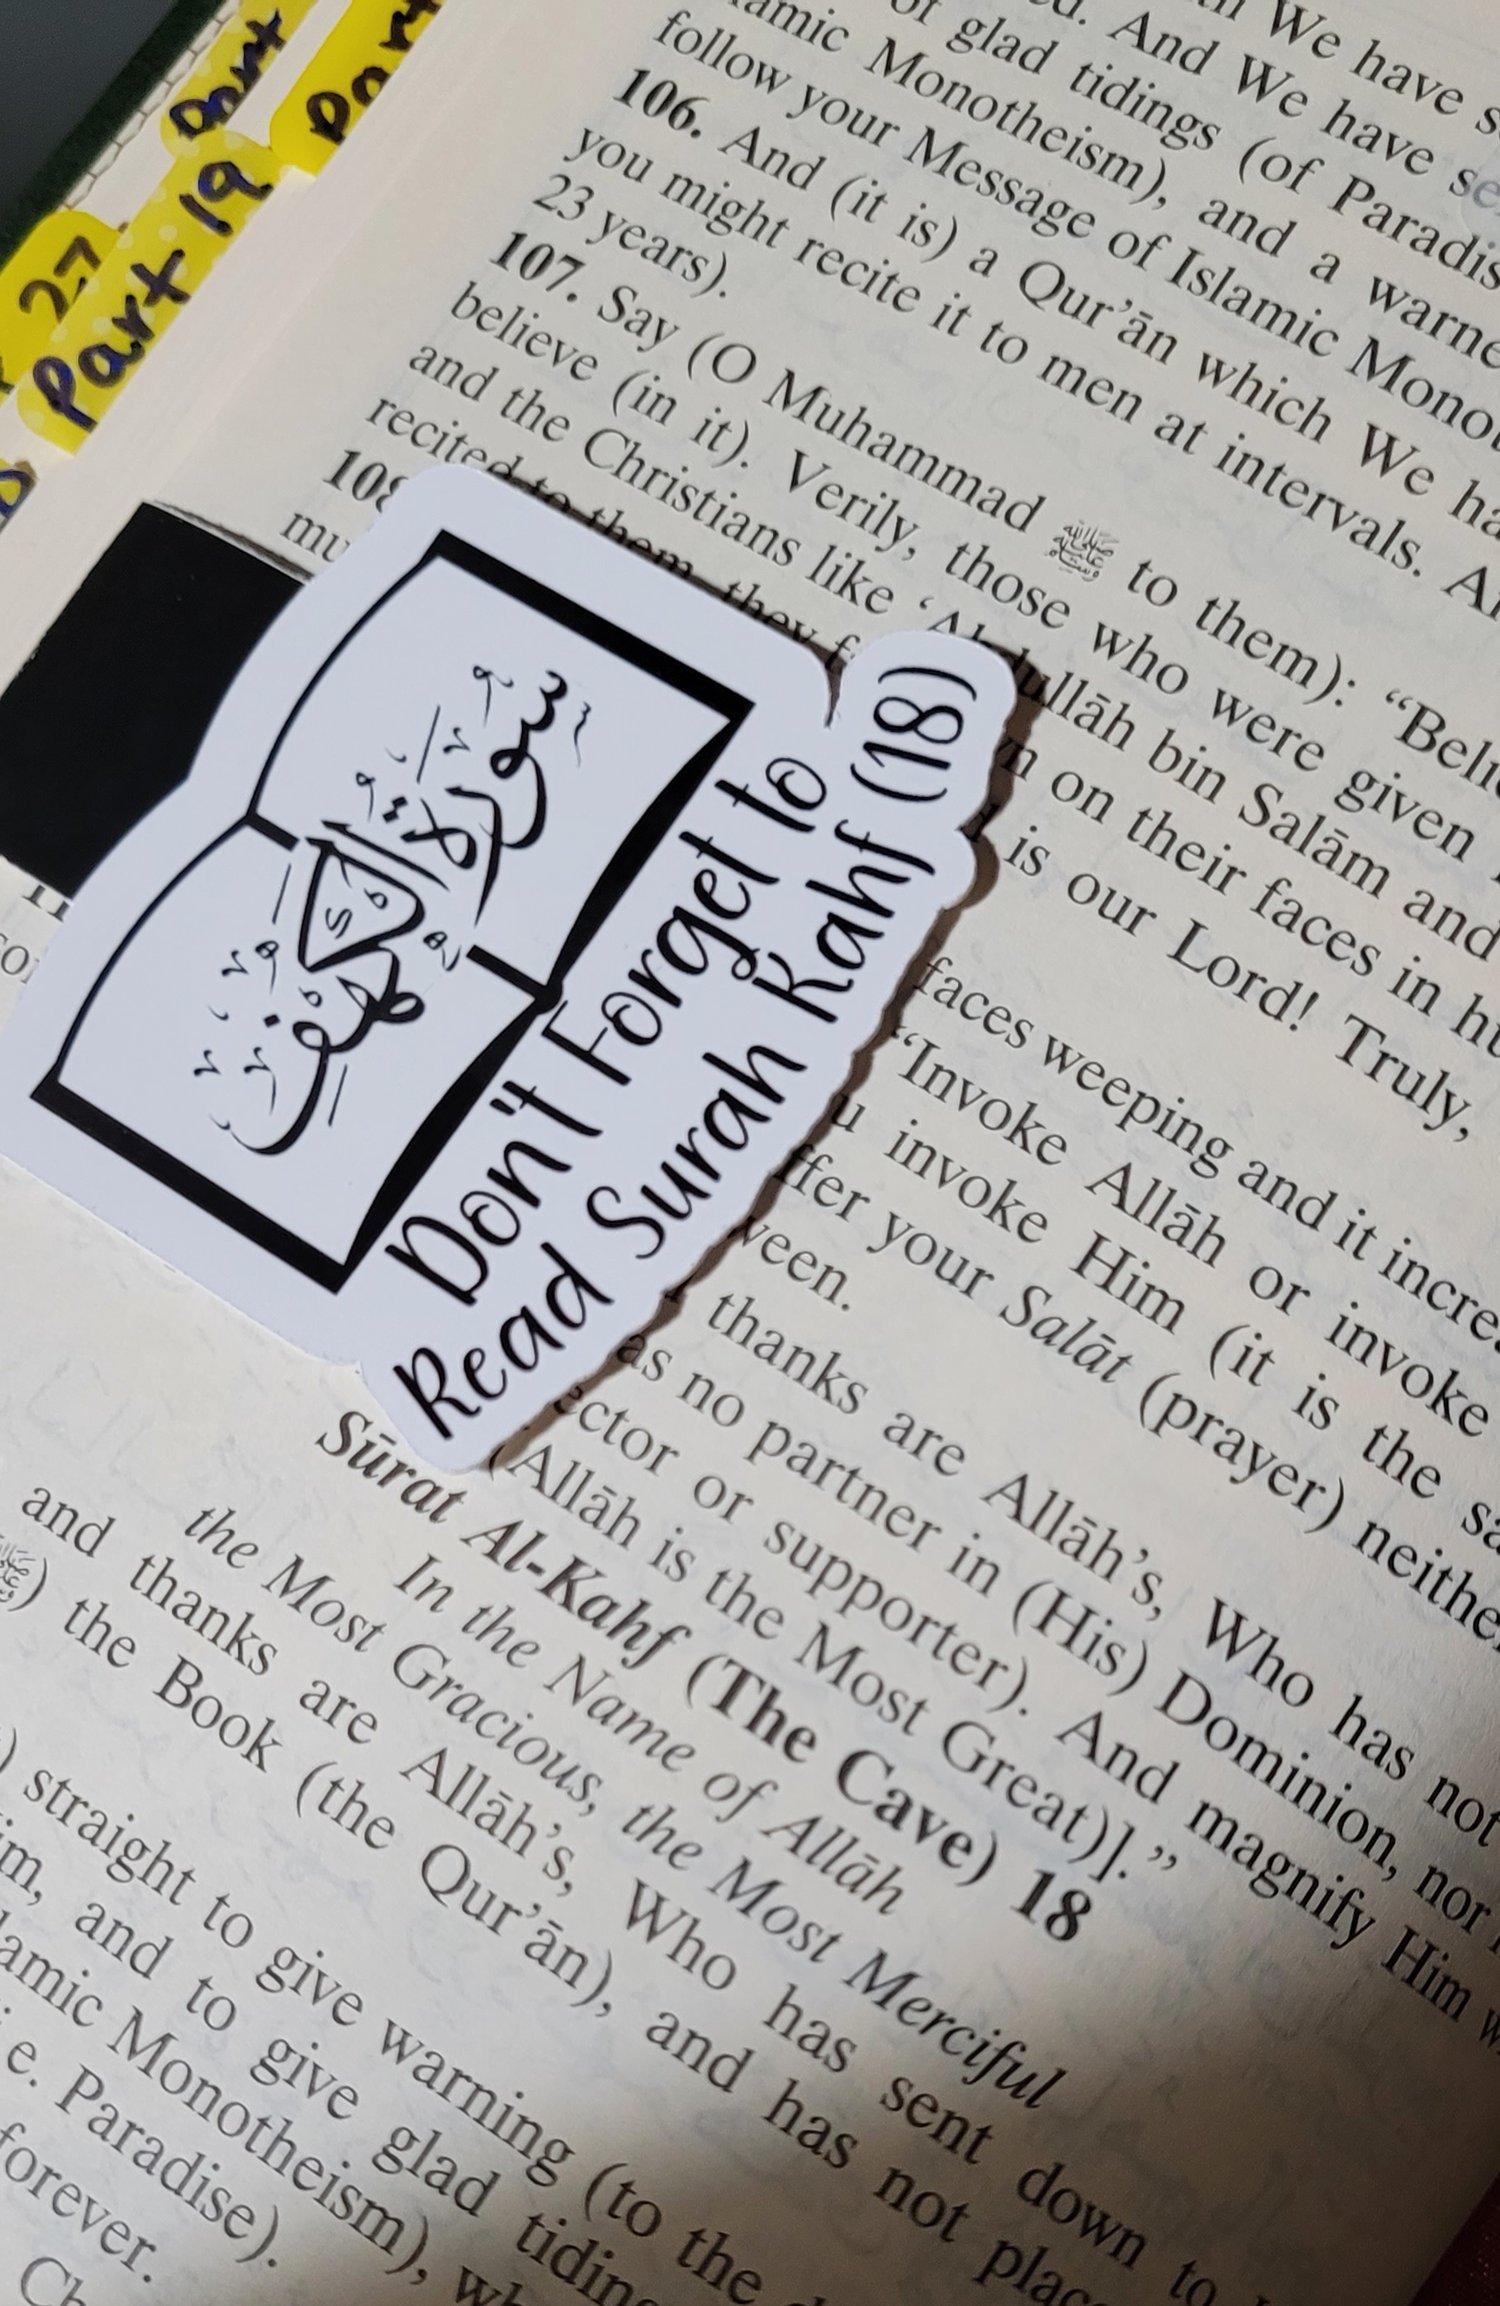 Part
Part
27
Part 19
We have s
And We have se
of glad tidings (of Paradis
Monotheism), and a warne
follow your Message of Islamic Mono
106. And (it is) a Qur'ān which We ha
you might recite it to men at intervals.
23 years).
107. Say (O Muhammad ﷺ to them): “Beli
believe (in it). Verily, those who were given
and the Christians like ‘Abdullāh bin Salām and
recited to them, they f
on their faces in hu
108
mu
is our Lord! Truly,
faces weeping and it incre
“Invoke Allāh or invoke
u invoke Him (it is the sa
ffer your Salāt (prayer) neither
ween.
thanks are Allāh’s, Who has not
as no partner in (His) Dominion, nor
ector or supporter). And magnify Him w
(Allāh is the Most Great)].”
سُورَةُ
الْكَهْفِ
Don't Forget to
Read Surah Kahf (18)
Sūrat Al-Kahf (The Cave) 18
In the Name of Allāh
the Most Gracious, the Most Merciful
and thanks are Allāh’s, Who has sent down to
ﷺ) the Book (the Qur’ān), and has not plac
straight to give warning (to the
im, and to give glad tidin
lamic Monotheism), wh
e. Paradise).
forever.
Ch